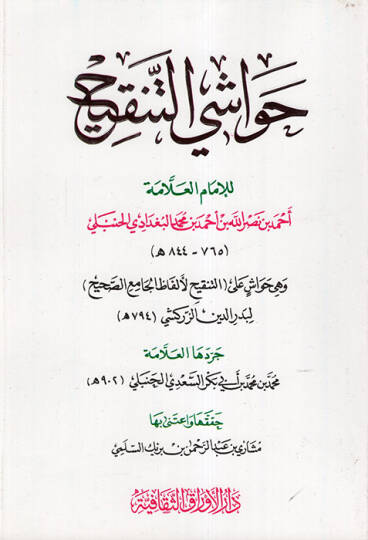 حَوَاشِي التَّنْقِيحِ
للإمام العلَّامة
أحمد بن نصر الله بن أحمد بن محمد البغدادي الحنبلي
(٧٦٥ - ٨٤٤ هـ)
وهي حواشٍ على (التنقيح لألفاظ الجامع الصحيح)
لبدر الدين الزركشي (٧٩٤هـ)
جرَّدها العلَّامة
محمد بن محمد بن أبي بكر السعدي الحنبلي (٩٠٢هـ)
حققها واعتنى بها
مشاري بن عبد الرحمن بن برنك السلمي
دار الأوراق الثقافية